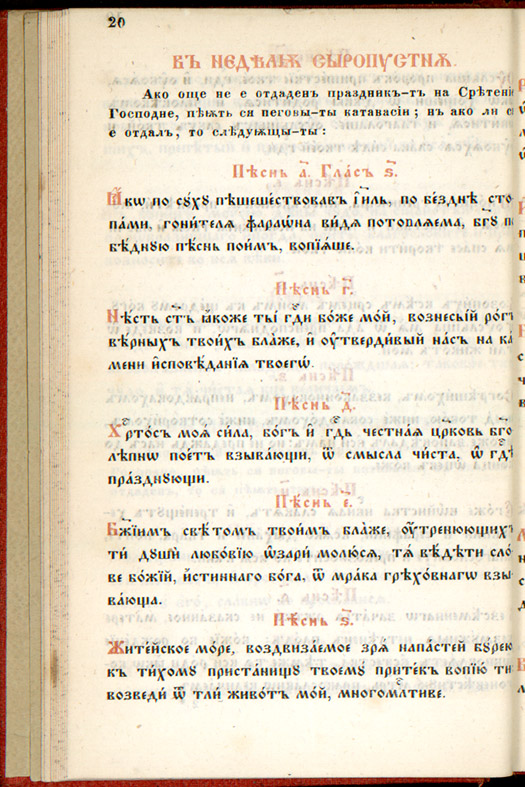 20
ВЪ НЕДѢЛѬ СЫРОПУСТНѪ.
Ако още не е отдаденъ праздникъ-тъ на Срѣтені
Господне, пѣѭтъ ся неговы-ты катавасіи; нъ ако ли
е отдалъ, то слѣдуѭщы-ты:
Пѣснь а҃. Гла́съ ѕ҃.
Ꙗ҆́кѡ по сꙋ́хꙋ пѣшеше́ствовавъ і҆и҃ль, по бе́зднѣ сто
па́ми, гони́телѧ фараѡ́на ви́дѧ потоплѧ́ема, бг҃ꙋ по
бѣ́днꙋю пѣ́снь пои́мъ, вопїѧ́ше.
Пѣснь г҃.
Нѣ́сть ст҃ъ ꙗ҆́коже ты̀ гдⷭ҇и бо́же мо́й, вознесы́й ро́гъ
вѣ́рныхъ твои́хъ бл҃же, и҆ ᲂу҆тверди́вый на́съ на ка́
мени и҆сповѣ́данїѧ твоегѡ̀.
Пѣснь д҃.
Хрⷭ҇то́съ моѧ̀ си́ла, бо́гъ и҆ гдⷭ҇ь, честна́ѧ цр҃ковь бг҃о
лѣ́пнѡ пое́тъ взыва́ющи, ѿ смы́сла чи́ста, ѡ҆ гдⷭ҇ѣ
пра́зднꙋющи.
Пѣснь е҃.
Бж҃їимъ свѣ́томъ твои́мъ бл҃же, ᲂу҆́тренюющихъ
ти́ дꙋ́шы̀ любо́вїю ѡ҆зарѝ молю́сѧ, тѧ̀ вѣ́дѣти сло́
ве бо́жїй, и҆́стиннаго бо́га, ѿ мра́ка грѣхо́внагѡ взы
ва́юща.
Пѣснь ѕ҃.
Жите́йское мо́ре, воздвиза́емое зрѧ̀ напа́стей бꙋ́рею
къ ти́хомꙋ приста́нищꙋ твоемꙋ̀ прите́къ вопїю́ ти
возведѝ ѿ тлѝ живо́тъ мо́й, многомлⷭ҇тиве.